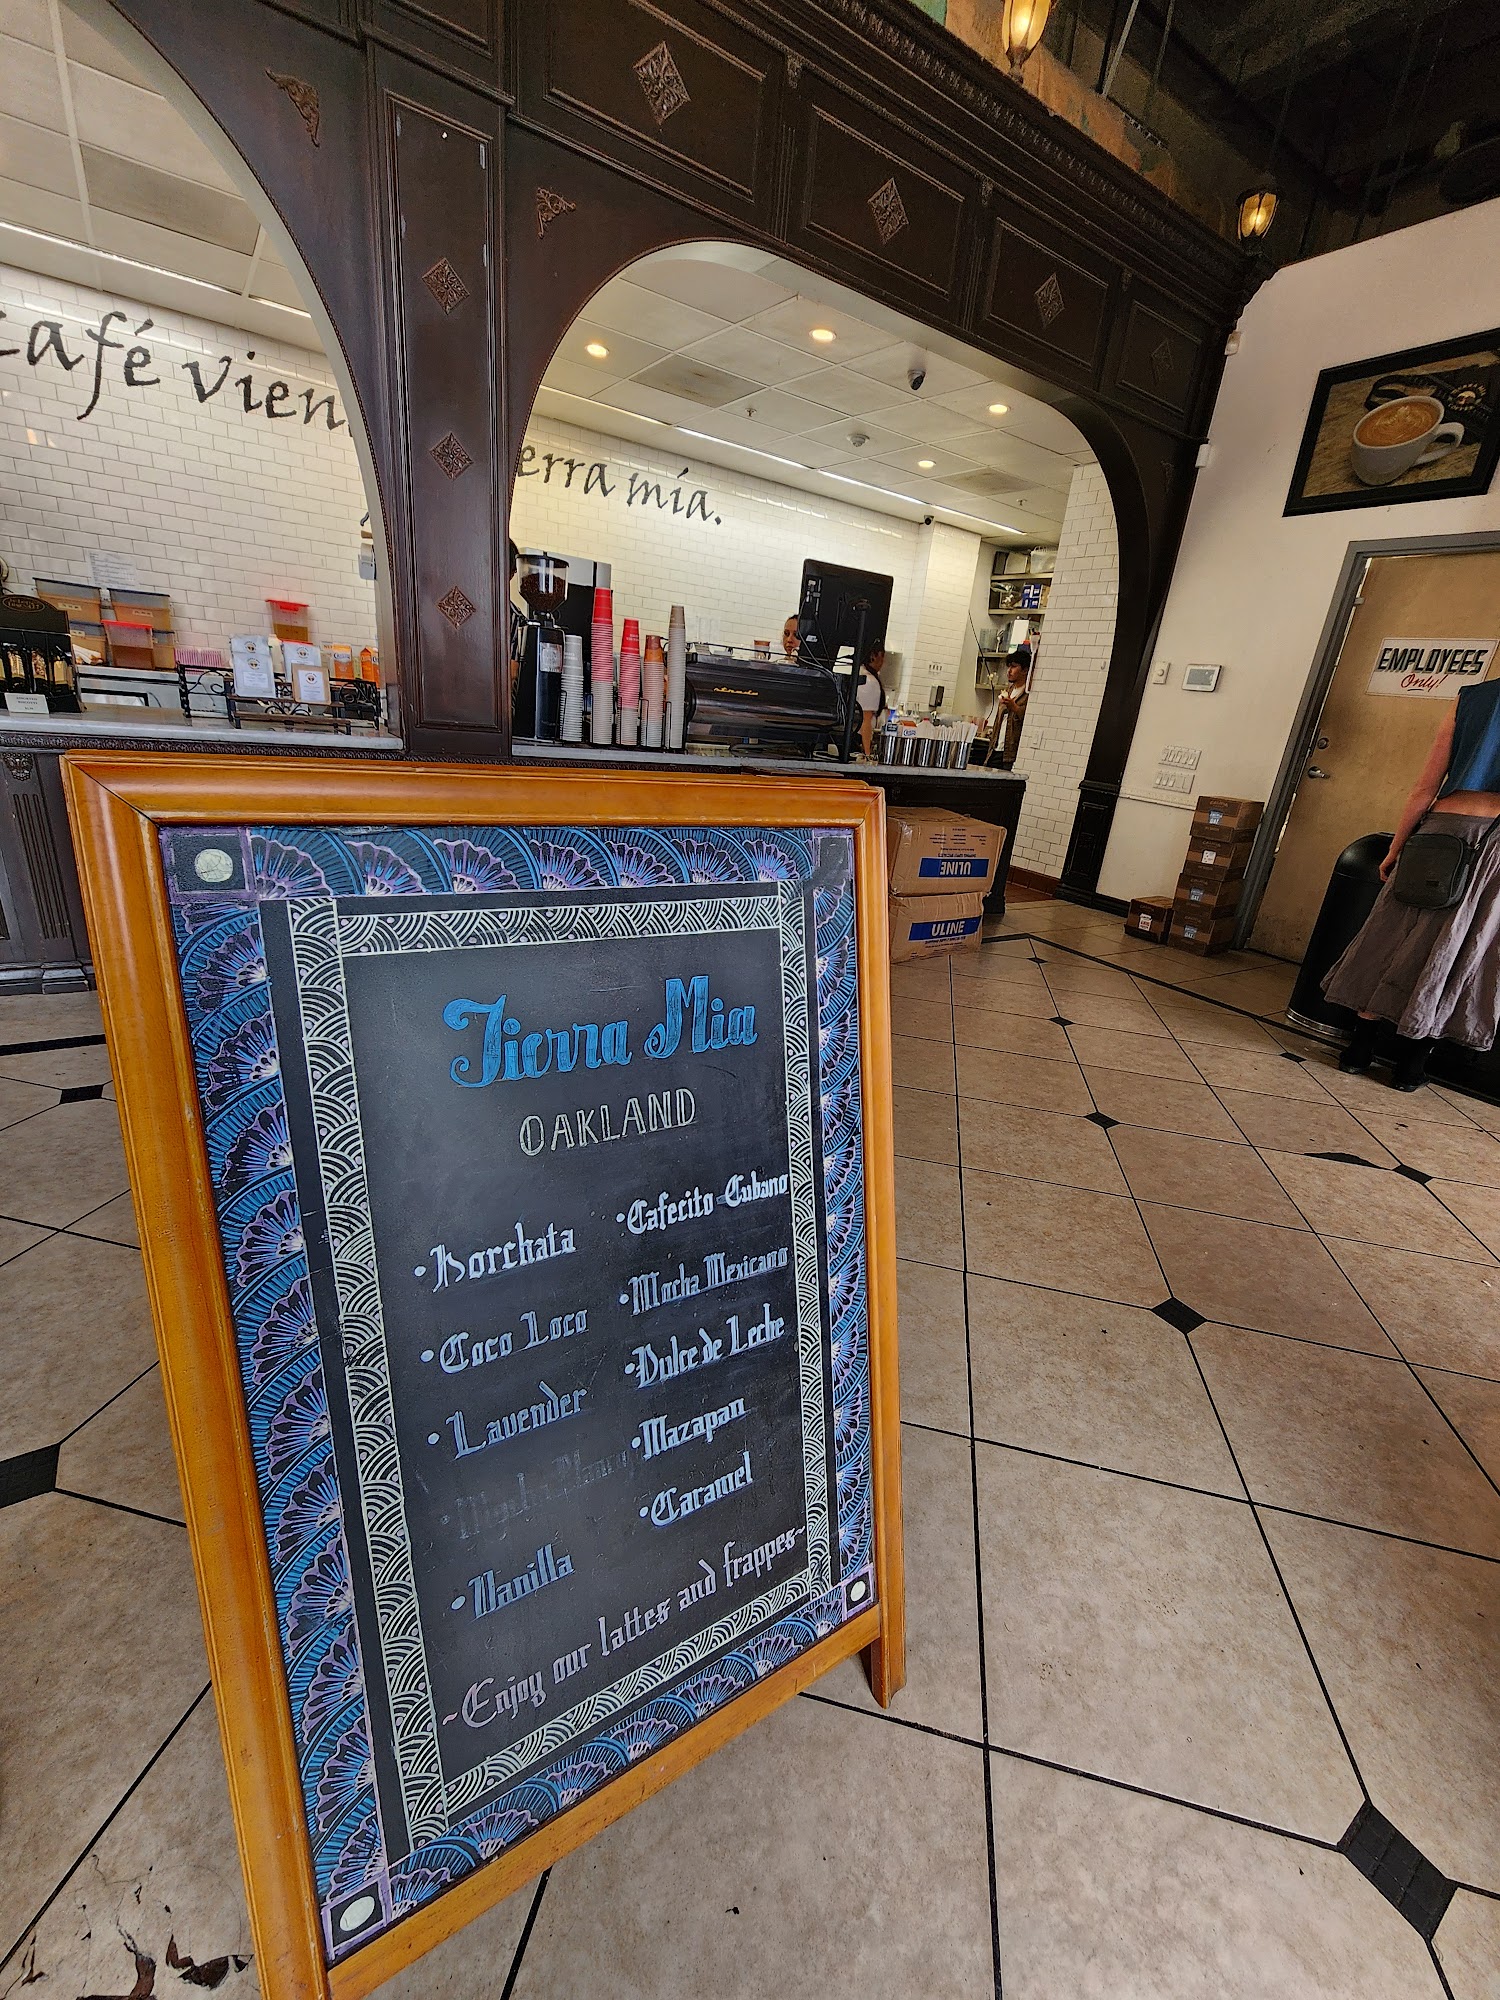 café vien
erra mía.
EMPLOYEES
Only!
ULINE
ULINE
Tierra Mia
OAKLAND
• Horchata
• Coco Loco
• Lavender
• Vanilla
• Cafecito Cubano
• Mocha Mexicano
• Dulce de Leche
• Mazapan
• Caramel
~Enjoy our lattes and frappes~